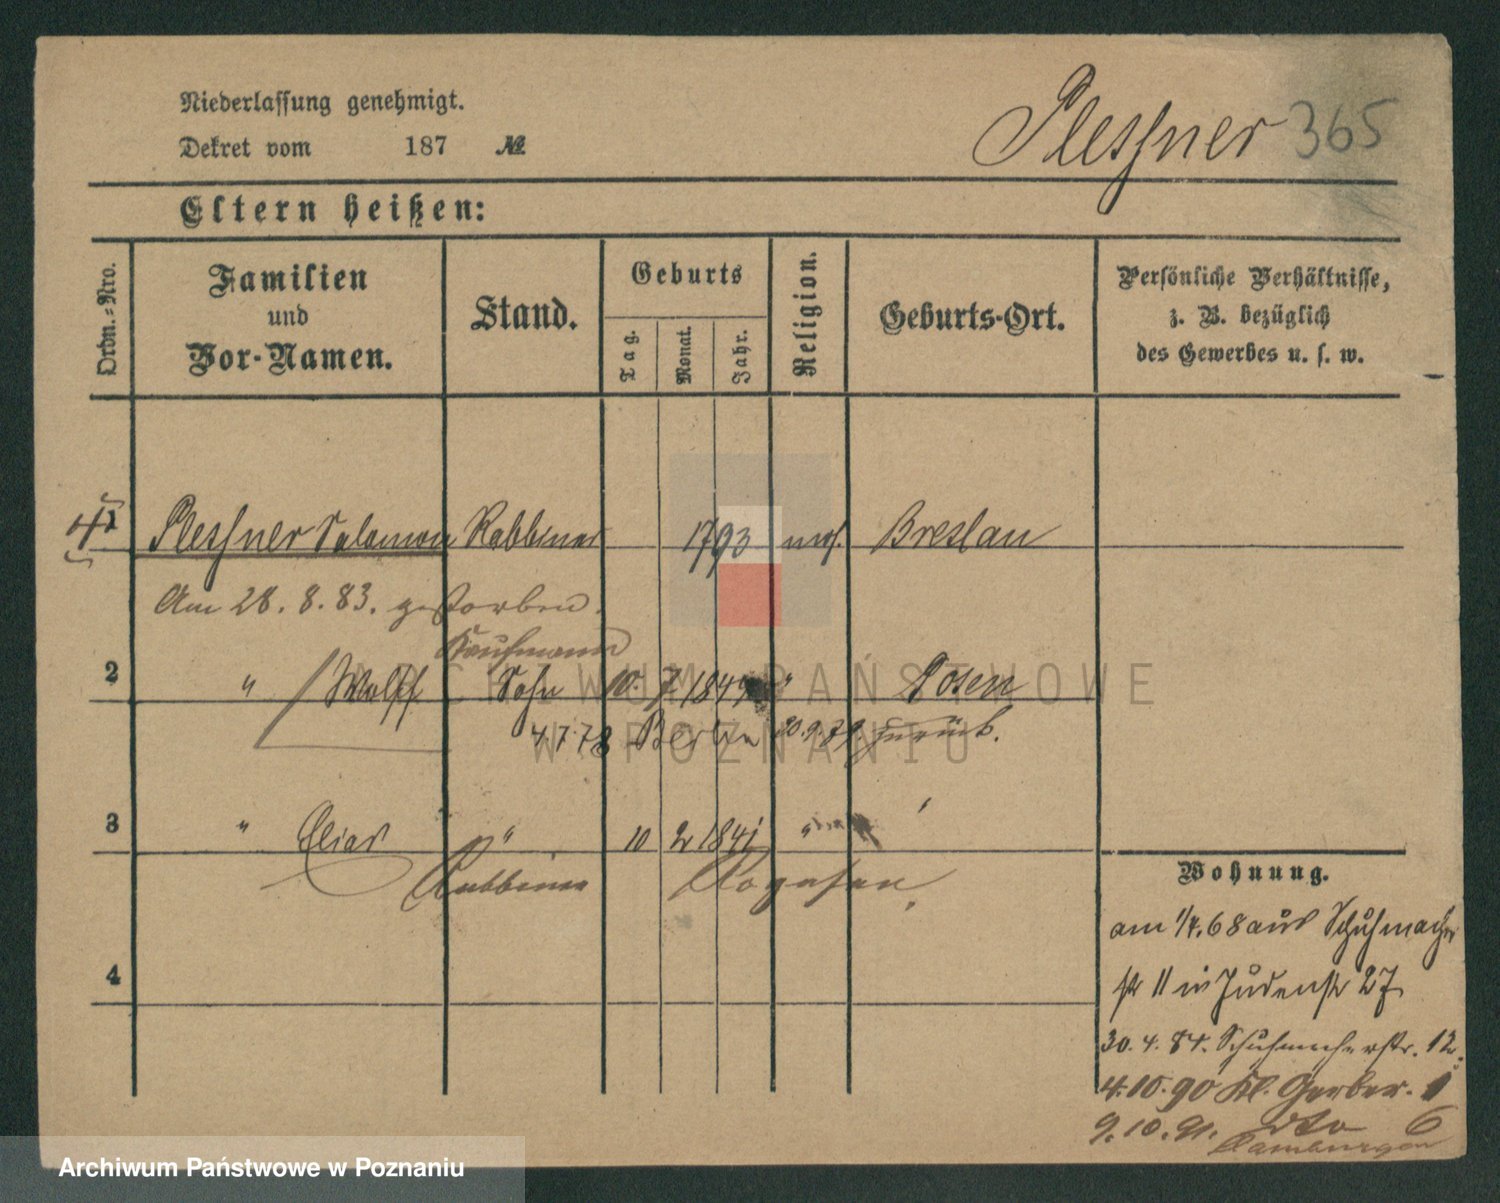 Niederlassung genehmigt.
Dekret vom 187 №
Plessner 365
Eltern heißen:
Ordn.-Nro.
Familien
und
Vor-Namen.
Stand.
Geburts
Tag.
Monat.
Jahr.
Religion.
Geburts-Ort.
Persönliche Verhältnisse,
z. B. bezüglich
des Gewerbes u. s. w.
1 Plessner Salomon Rabbiner 1793 mos. Breslau
Am 28. 8. 83. gestorben.
Kaufmann
2 " Wolff Sohn 10. 7 " Posen
4.7.78 Berlin 20.9.79. zurück.
3 " Elias " 10 2 1841 "
Rabbiner Rogasen,
4
Wohnung.
am 1/4.68 aus Schuhmacher
str 11 in Judenstr 27
30. 4. 84. Schuhmacherstr. 12.
4.10.90 Kl. Gerber. 1
9.10.91. dto 6
ARCHIWUM PAŃSTWOWE
W POZNANIU
Archiwum Państwowe w Poznaniu